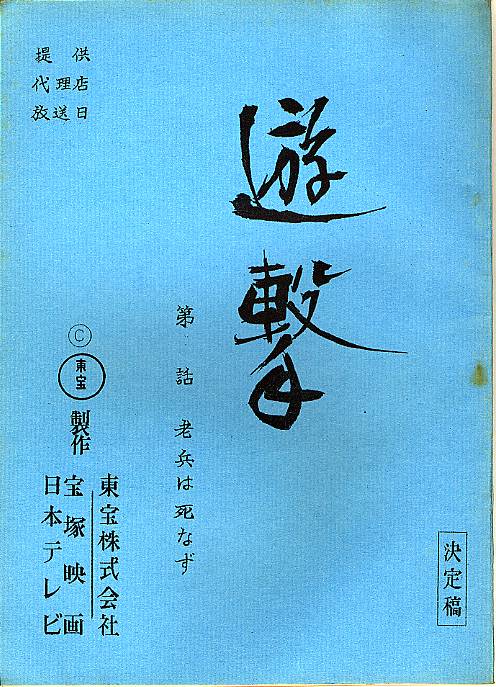 遊撃
第 話 老兵は死なず
提供
代理店
放送日
Ⓒ
東宝
製作
東宝株式会社
宝塚映画
日本テレビ
決定稿